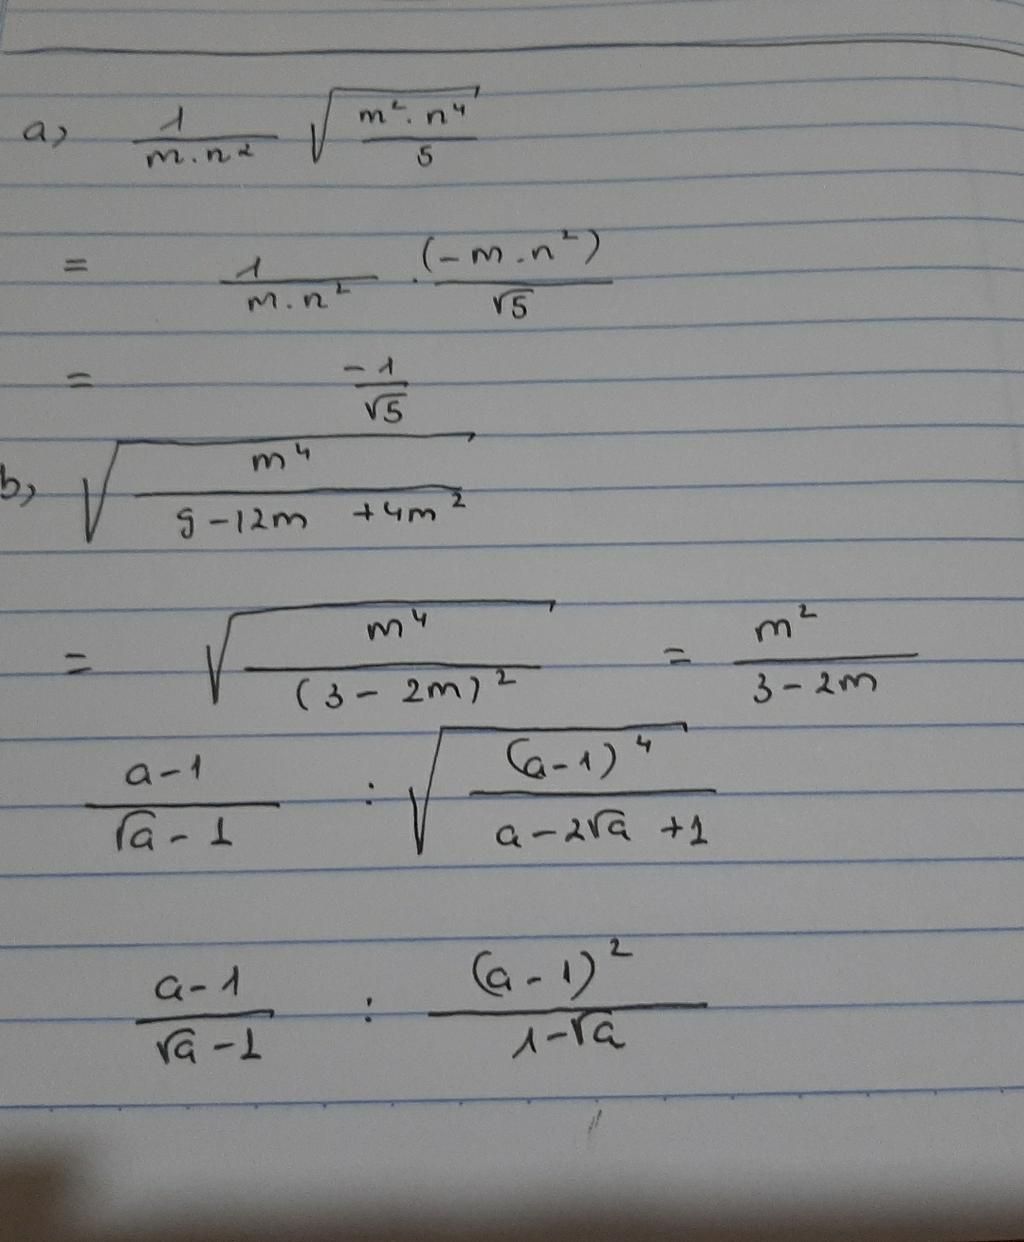 a) \frac{1}{m.n^2} \sqrt{\frac{m^2.n^4}{5}}
= \frac{1}{m.n^2} . \frac{(-m.n^2)}{\sqrt{5}}
= \frac{-1}{\sqrt{5}}
b) \sqrt{\frac{m^4}{9-12m+4m^2}}
= \sqrt{\frac{m^4}{(3-2m)^2}} = \frac{m^2}{3-2m}
\frac{a-1}{\sqrt{a}-1} : \sqrt{\frac{(a-1)^4}{a-2\sqrt{a}+1}}
\frac{a-1}{\sqrt{a}-1} : \frac{(a-1)^2}{1-\sqrt{a}}